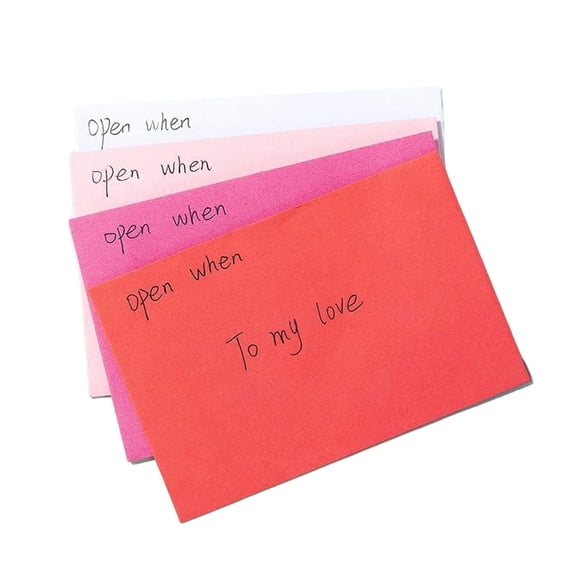 open when
open when
open when
open when
To my love